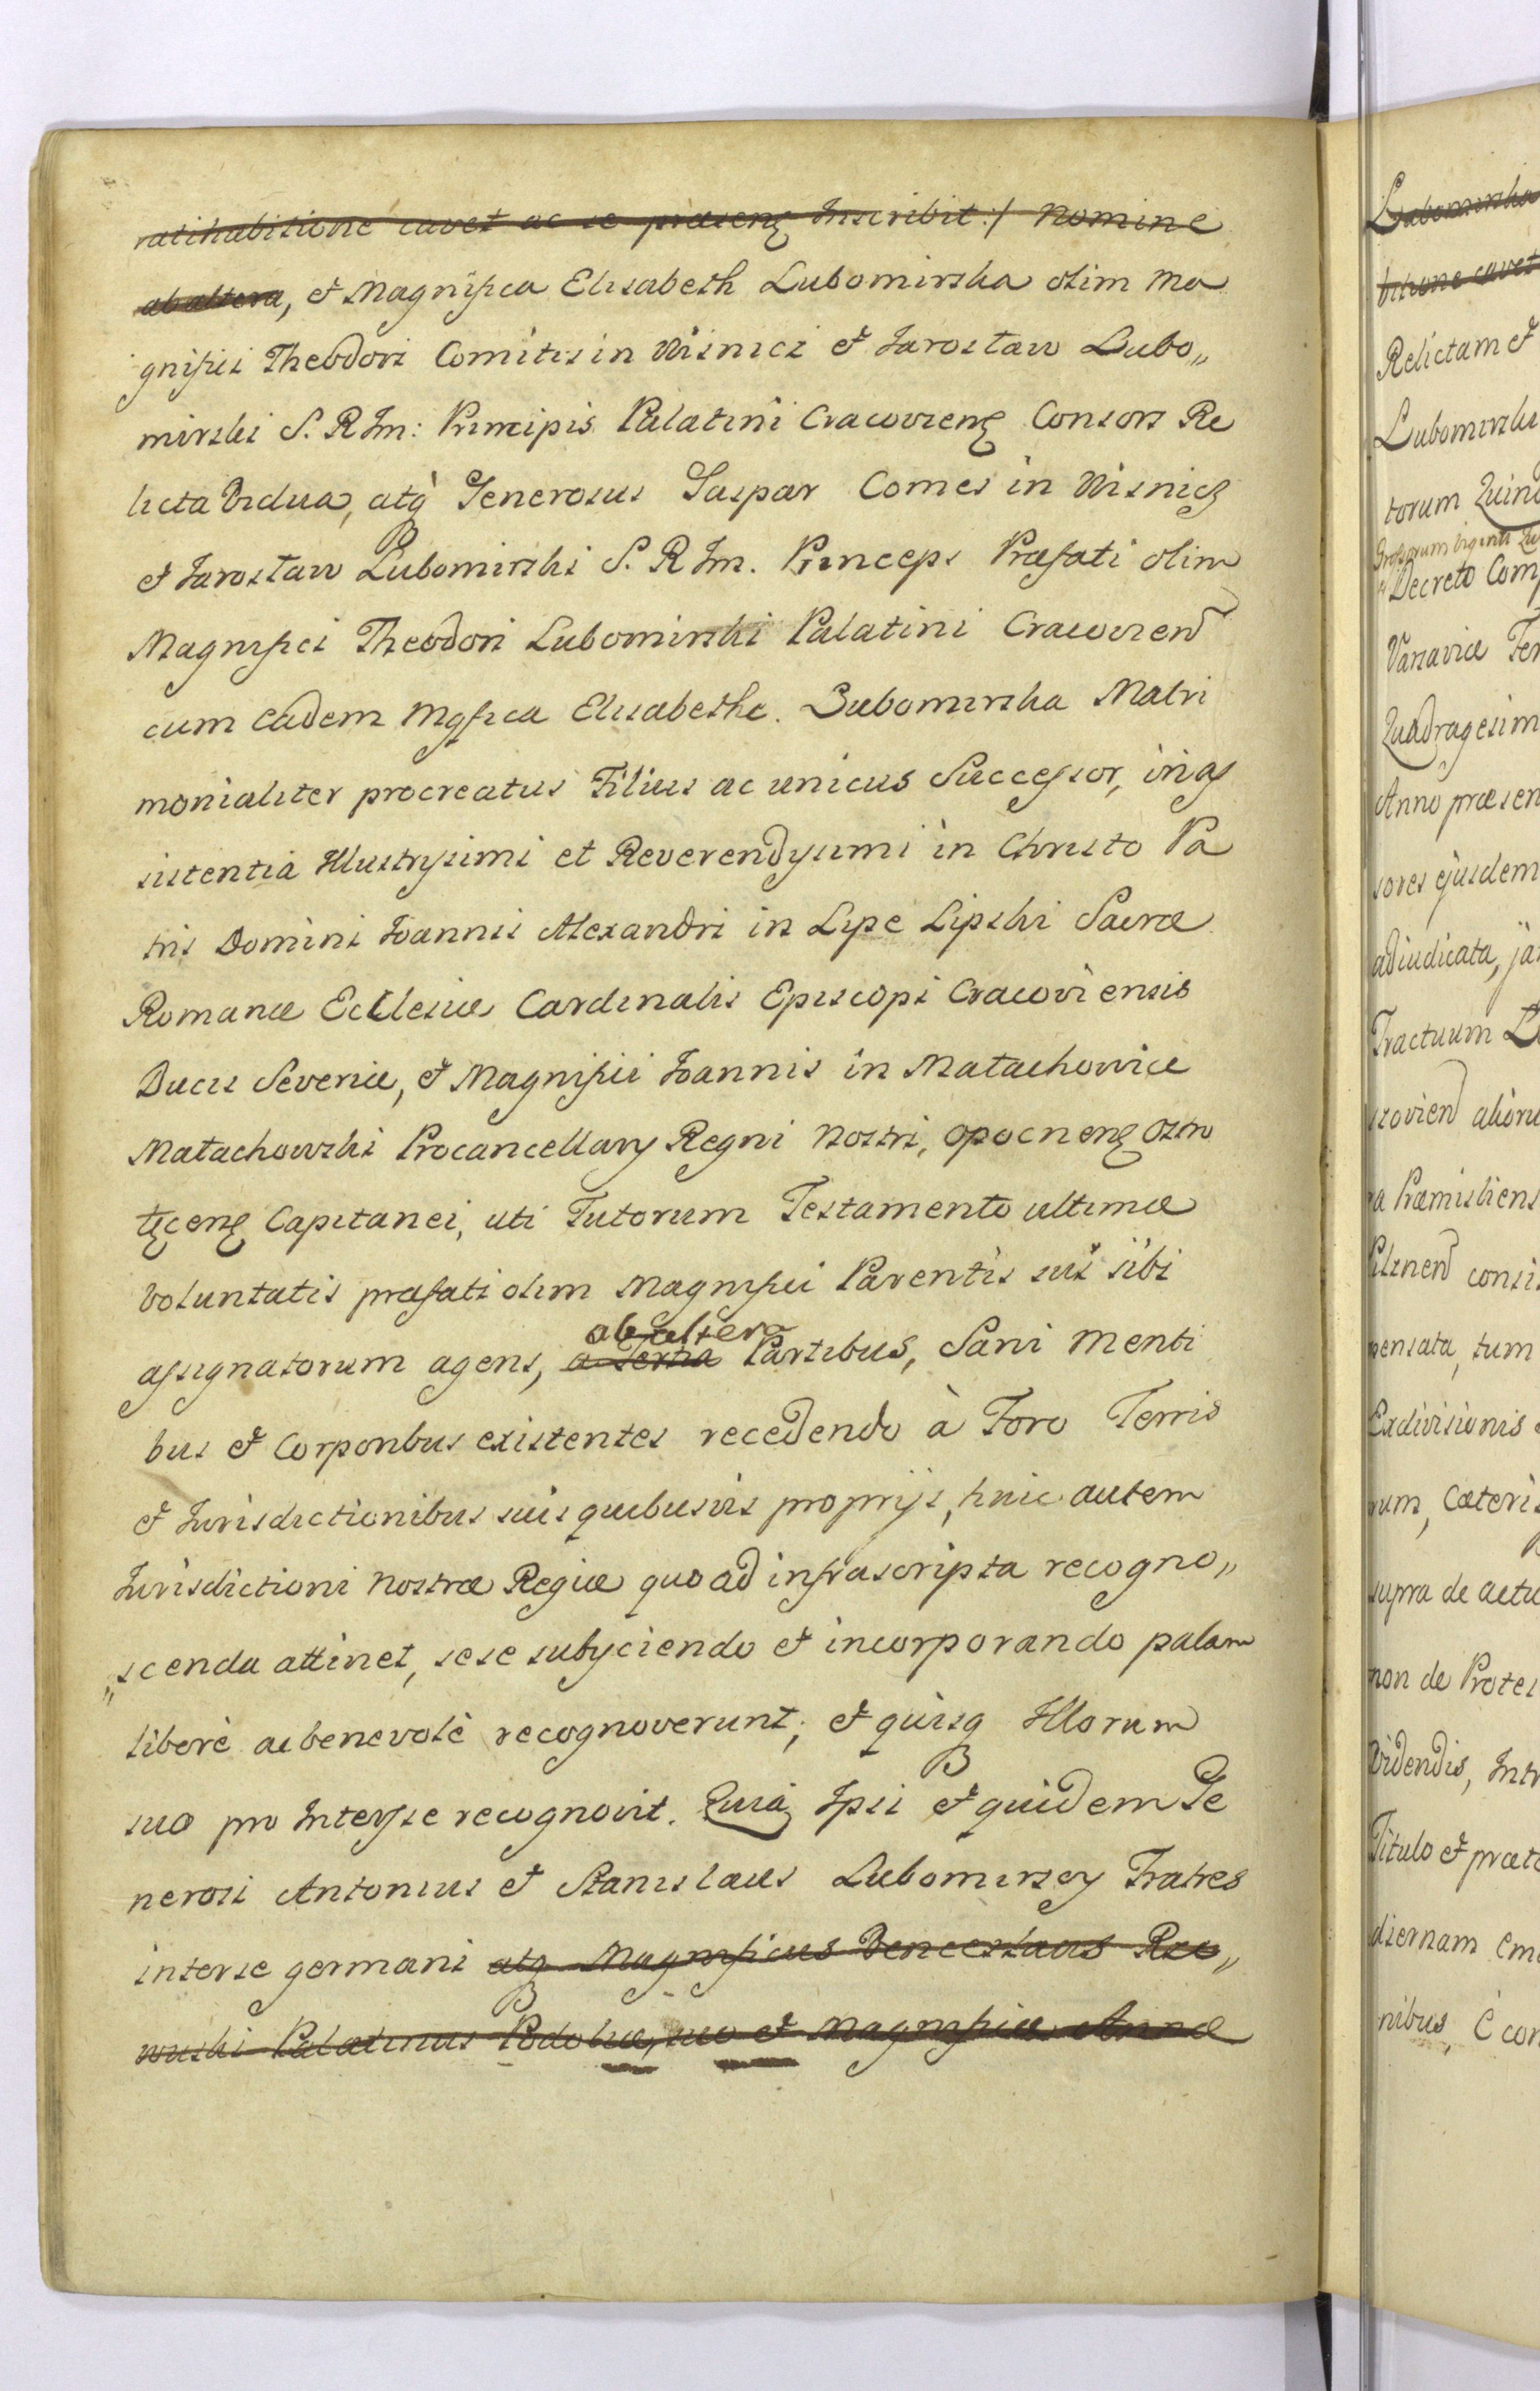 ratihabitione cavet ac se præsenς Inscribit:/ Nomine
ab altera, et Magnifica Elisabeth Lubomirska olim Ma
gnifici Theodori Comitis in Wisnicz et Jarosław Lubo„
mirski S. R Im: Principis Palatini Cracovienς Consors Re
licta Vidua, atq̀ Generosus Gaspar Comes in Wisnicz
et Jarosław Lubomirski S. R Im. Princeps Præfati olim
Magnifici Theodori Lubomirski Palatini Cracovien
cum eadem Mgfica Elisabethe. Lubomirska Matri
monialiter procreatus Filius ac unicus Successor, in as
sistentia Illustrissimi et Reverendissimi in Christo Pa
tris Domini Joannis Alexandri in Lipe Lipski Sacræ
Romanæ Ecclesiæ Cardinalis Episcopi Cracoviensis
Ducis Severiæ, et Magnifici Joannis in Małachowice
Małachowski Procancellarij Regni Nostri, Opocnenς Ostro
łęcenς Capitanei, uti Tutorum Testamento ultimæ
Voluntatis præfati olim Magnifici Parentis sui sibi
ab altera
assignatorum agens, a Tertia Partibus, Sani Menti
bus et Corporibus existentes recedendo à Foro Terris
et Jurisdictionibus suis quibusvis proprijs, huic autem
Jurisdictioni Nostræ Regiæ quo ad infrascripta recogno„
„scenda attinet, sese subijciendo et incorporando palam
liberè ac benevolè recognoverunt; et quisq Illorum
suo pro Interesse recognovit. Quia Ipsi et quidem Ge
nerosi Antonius et Stanislaus Lubomirscy Fratres
inter se germani atq Magnificus Venceslaus Rze„
wuski Palatinus Podoliæ, suo et Magnificæ Annæ
Lubomirska
bitione cavet
Relictam et
Lubomirski
torum Quind
Grossorum viginti
Decreto Comp
Varsaviæ Fer
Quadragesim
Anno præsen
sores ejusdem
adiudicata, ja
Tractuum
rovien alioru
a Præmisliens
Pilznen consis
pensata, tum
Exdivisionis
rum, Cæteris
supra de actu
non de Protes
Videndis, Intr
Titulo et præte
diernam Em
nibus, è con